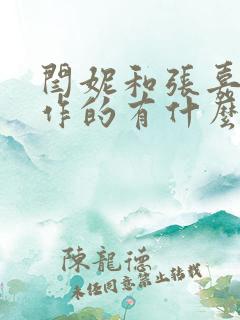 閆妮和張嘉
作的有什麼
陳龍德
未经同意禁止转载